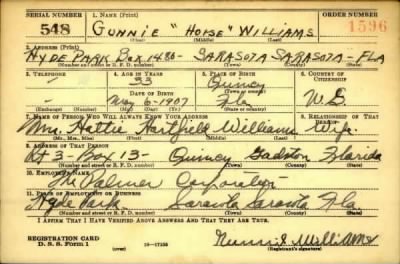 SERIAL NUMBER 1. NAME (Print) ORDER NUMBER
548 GUNNIE "HORSE" WILLIAMS 1596
(First) (Middle) (Last)
2. ADDRESS (Print)
HYDE PARK BOX 1480 - SARASOTA SARASOTA - FLA
(Number and street or R. F. D. number) (Town) (County) (State)
3. TELEPHONE 4. AGE IN YEARS 5. PLACE OF BIRTH 6. COUNTRY OF CITIZENSHIP
33 Quincy
DATE OF BIRTH (Town or county)
May 6 - 1907 Fla U.S.
(Exchange) (Number) (Mo.) (Day) (Yr.) (State or country)
7. NAME OF PERSON WHO WILL ALWAYS KNOW YOUR ADDRESS 8. RELATIONSHIP OF THAT PERSON
Mrs. Hattie Hartfield Williams Wife
(Mr., Mrs., Miss) (First) (Middle) (Last)
9. ADDRESS OF THAT PERSON
Rt 3 - Box 13 - Quincy Gadsden Florida
(Number and street or R. F. D. number) (Town) (County) (State)
10. EMPLOYER'S NAME
The Palmer Corporation
11. PLACE OF EMPLOYMENT OR BUSINESS
Hyde Park Sarasota Sarasota Fla.
(Number and street or R. F. D. number) (Town) (County) (State)
I AFFIRM THAT I HAVE VERIFIED ABOVE ANSWERS AND THAT THEY ARE TRUE.
REGISTRATION CARD
D. S. S. Form 1 16-17105 Gunnie Williams
(Registrant's signature)